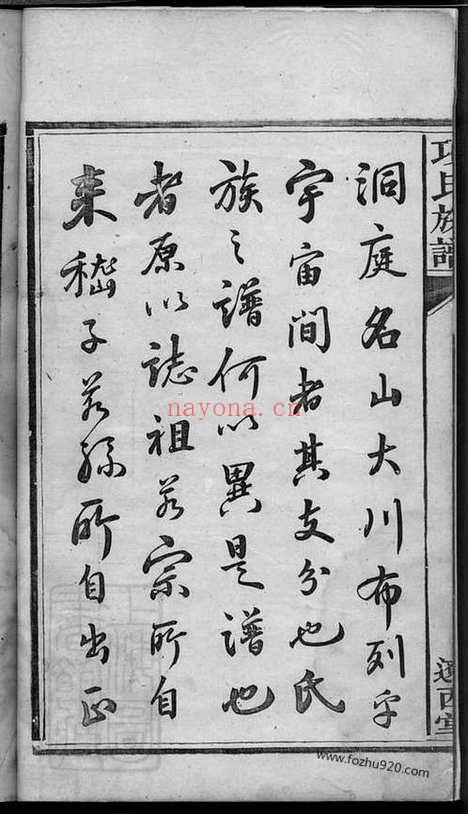 項氏族譜
洞庭名山大川布列乎
宇宙間者其支分也氏
族之譜何以異是譜也
者原以誌祖若宗所自
来嵇子若孫所自出正
西堂
nayona.cn
www.fozhu920.com